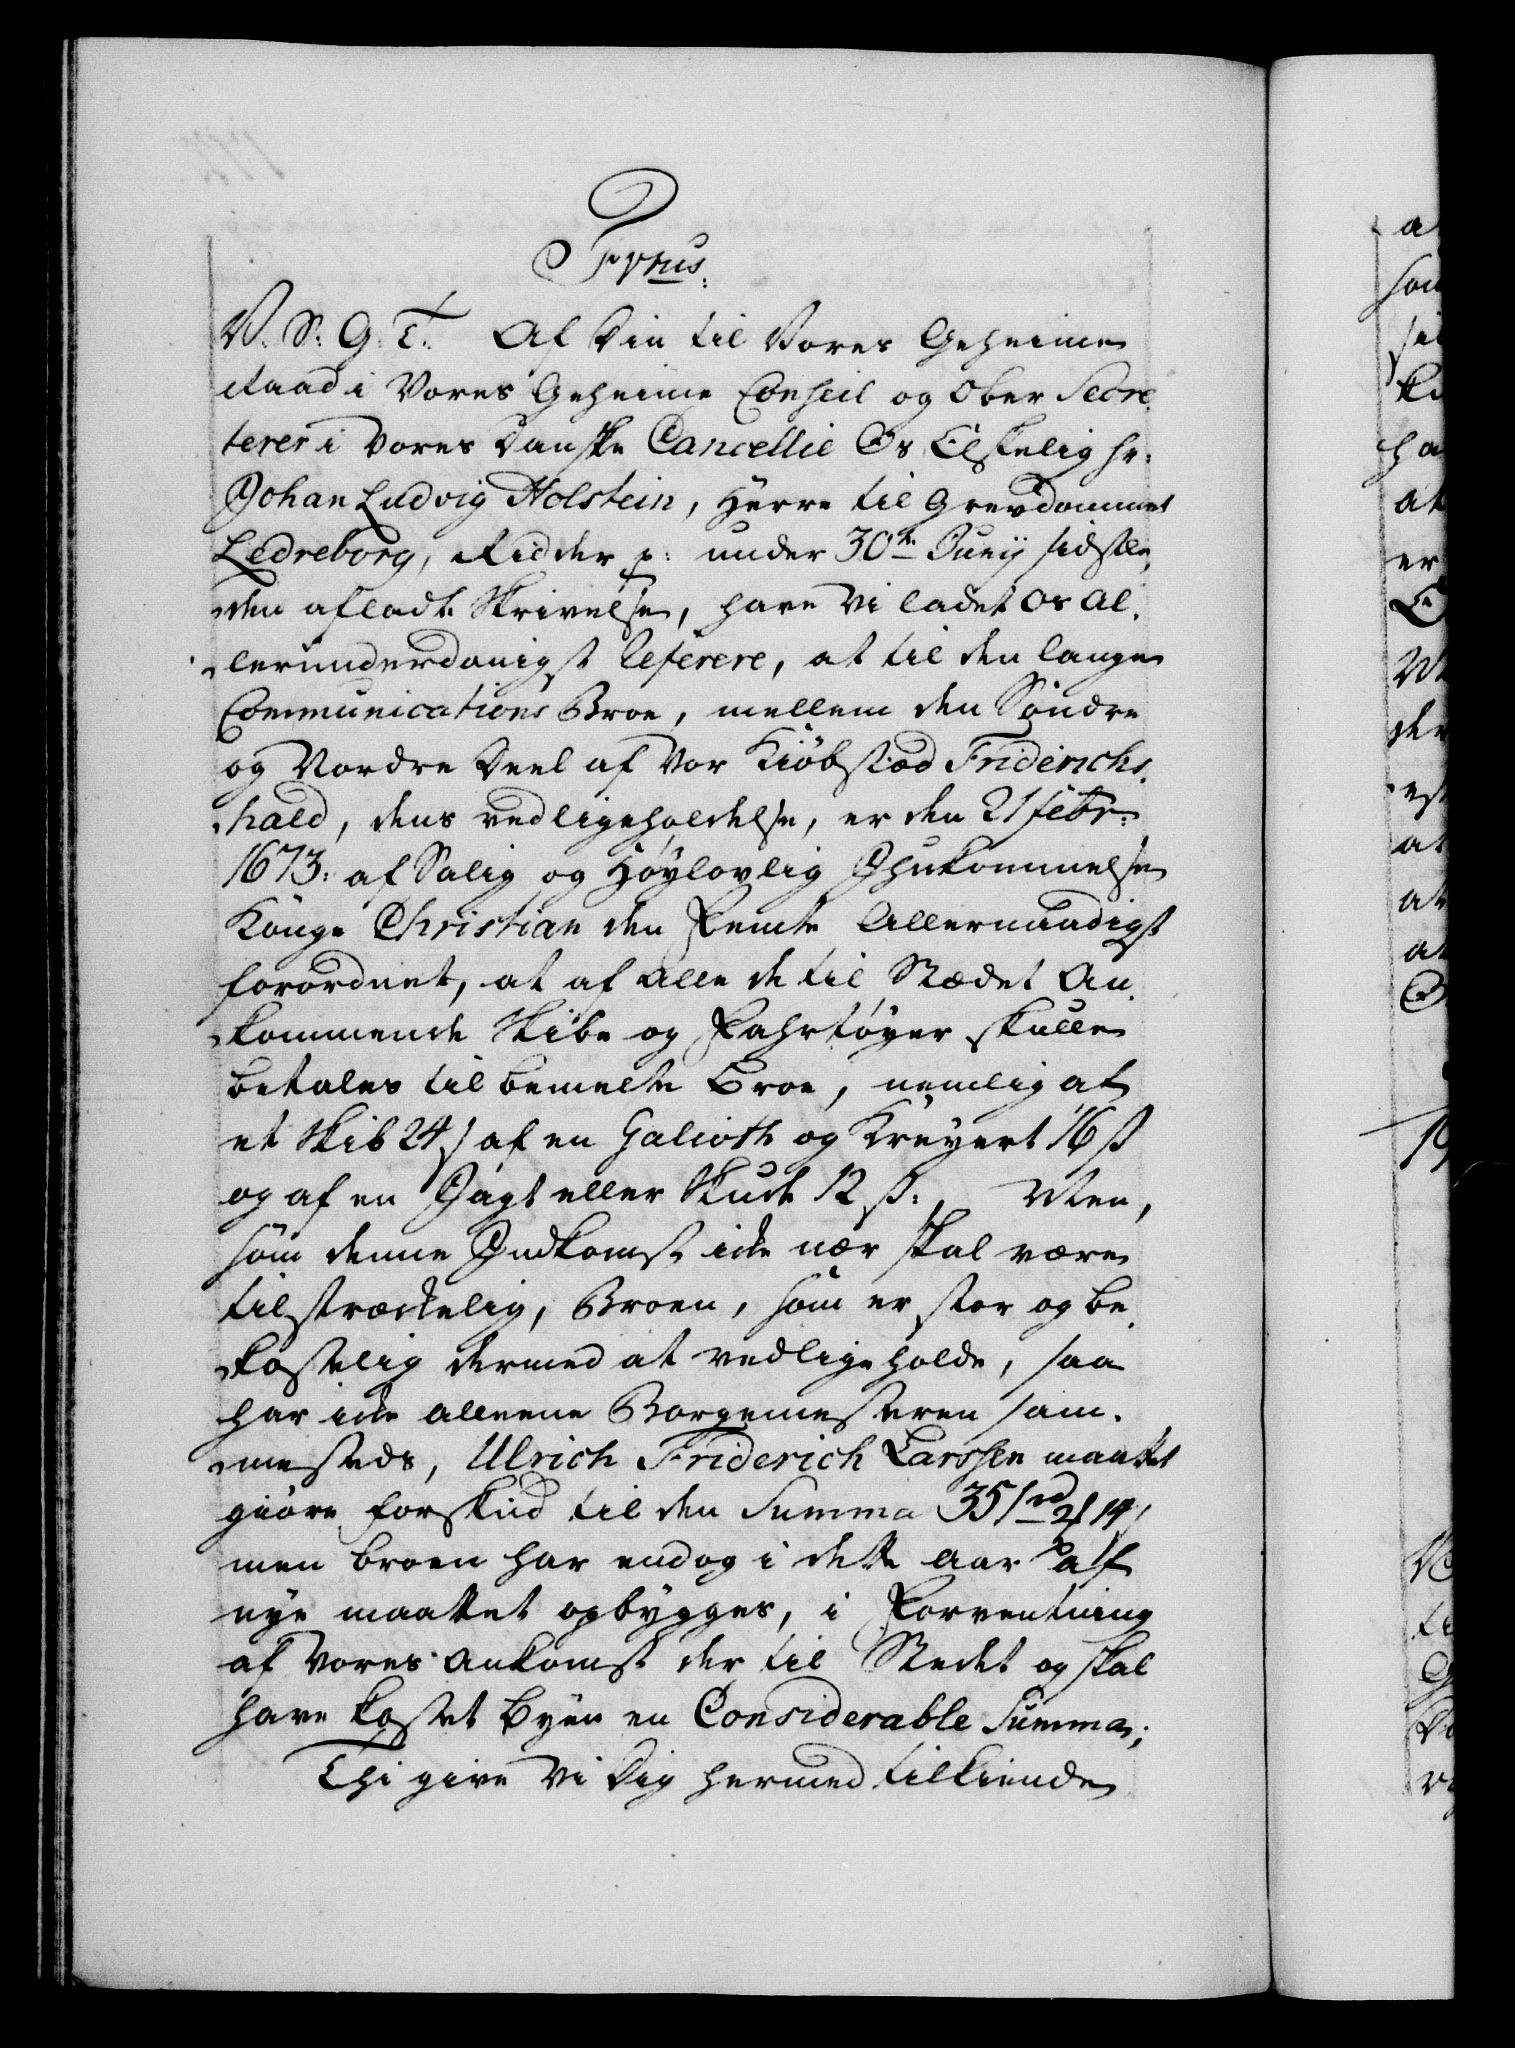 Frnus.
V. S: G. T: Af Din til Vores Geheime
Raad i Vores Geheime Conseil og Ober Secre,
terer i Vores Danske Cancellie Os Elskelig Hr:
Johan Ludvig Holstein, Herre til Grevdommet
Ledreborg, Ridder p: under 30te Junij sidstle,
den afladte Skrivelse, have Vi ladet Os Al,
lerunderdanigst referere, at til den lange
Communications Broe, mellem den Søndre
og Nordre Deel af Vor Kiöbstæd Friderichs,
hald, dens vedligeholdelse, er den 21 Febr:
1673. af Salig og Høylovlig Ihukommelse
Konge Christian den Femte Allernaadigst
forordnet, at af alle de til Stædet An,
kommende Skibe og Fahrtøyer skulle
betales til bemelte Broe, nemlig af
et Skib 24 ß af en Galioth og Kreyert 16 ß
og af en Jagt eller Skude 12 ß: Men,
som denne Indkomst icke nær skal være
tilstræckelig, Broen, som er stor og be,
kostelig dermed at vedligeholde, saa
har icke alleene Borgemesteren sam,
mesteds, Ulrich Friderich Larssen maattet
giöre forskud til den Summa 351 rd 2 14 ß
men broen har endog i dette Aar af
nye maattet opbygges, i Forventning
af Vores Ankomst der til Stedet og skal
have kostet Byen en Considerable Summa;
Thi give Vi Dig hermed tilkiende